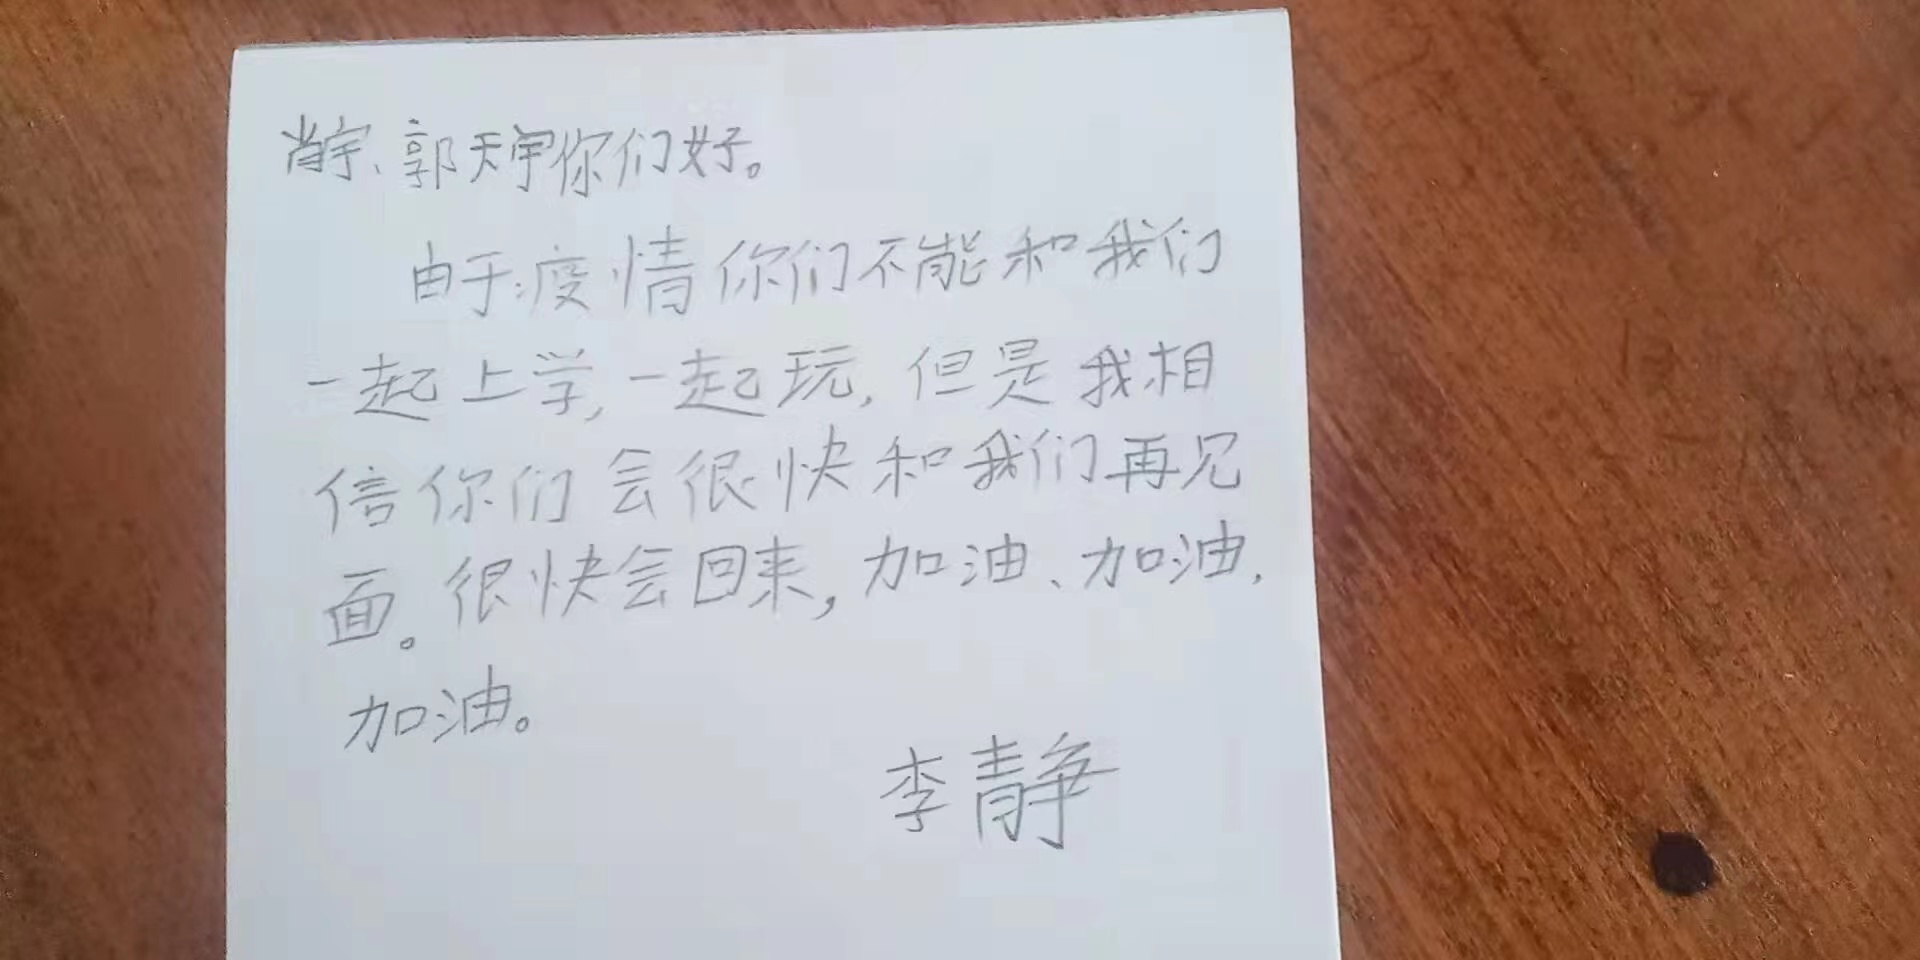 肖宇、郭天宇你们好。
由于疫情你们不能和我们
一起上学,一起玩,但是我相
信你们会很快和我们再见
面。很快会回来,加油、加油,
加油。
李静